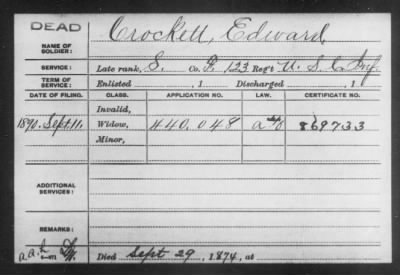 DEAD
Crockett, Edward
NAME OF SOLDIER:
SERVICE: Late rank, S. Co. F, 123 Reg't U. S. C. Inf.
TERM OF SERVICE: Enlisted , 1 Discharged , 1
DATE OF FILING. CLASS. APPLICATION NO. LAW. CERTIFICATE NO.
Invalid,
1890. Sept. 11. Widow, 440.048 869733
Minor,
ADDITIONAL SERVICES:
REMARKS:
Died Sept 29, 1874, at